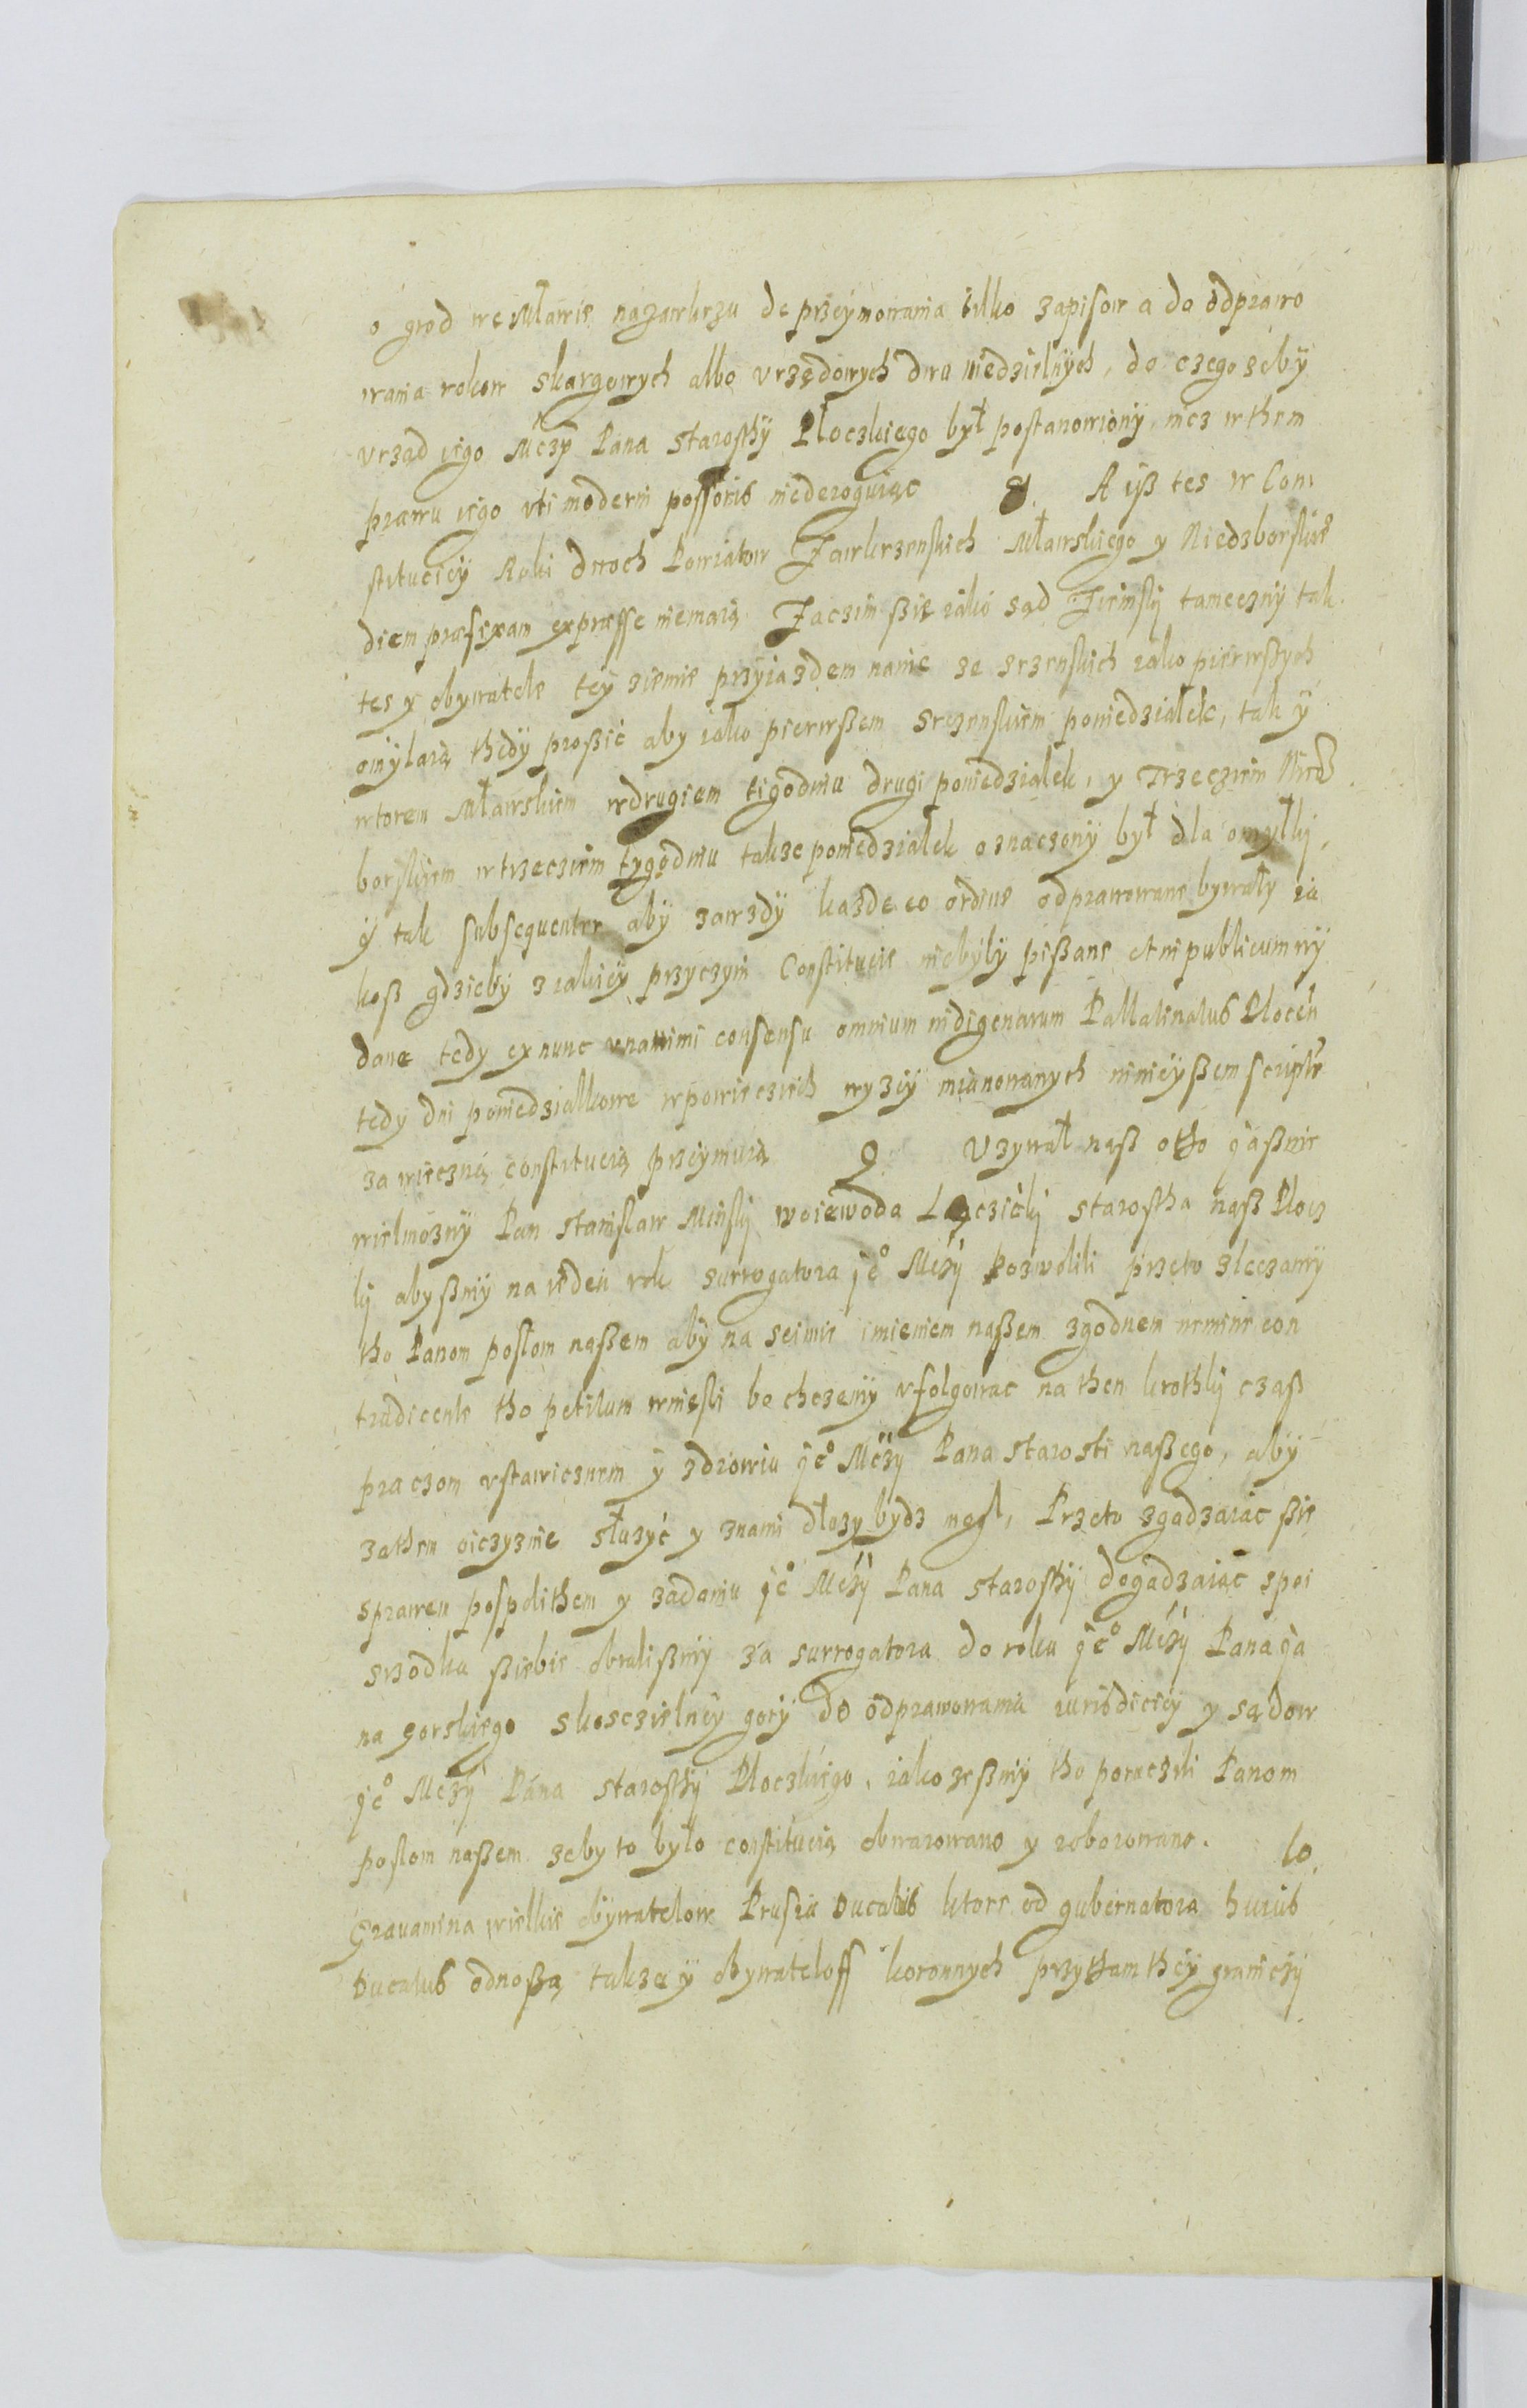 o grod we Mławie nazawkrzu de przeymowania tilko zapisow a do odprawo
wania rokow skargowych albo vrzędowych dwu niedzielnych, do czego zeby
vrząd iego Mczy Pana starosthy Płoczkiego był postanowiony, nicz w them
prawu iego vti moderni possoris niederoguiąc 8. A iiß tes w Con
stituciey Roki dwoch Powiatow Zawkrzenskich Mławskiego y Niedzborskie
diem præfixam expræsse niemaią Zaczim ßie iako sąd Ziemsky tameczny tak
tes y obywatele tey ziemie przyiazdem nanie ze srzenskich iako pierwßych
omylaią thedy proßić aby iako pierwßem Srzenskiem poniedziałek, tak y
wtorem Mławskiem w drugiem tigodniu drugi poniedziałek, y Trzecziem Niedz
borskiem w trzecziem tygodniu takze poniedziałek oznaczony był dla omyłky,
y tak subsequenter aby zawzdy kazde eo ordine odprawowane bywały ia
koß gdzieby z iakiey przyczyni Constitucie niebyly pißane et in publicum wy
dane tedy ex nunc vnanimi consensu omnium indigenarum Pallatinatus Plocen
tedy dni poniedziałkowe w powieczich wyzey mianowanych ninieyßem scripte
za wieczną constitucią przeymuią 9. Vzywał naß otho iaßnie
wielmozny Pan Stanisław Minsky woiewoda Lęczicky starostha naß Płocz
ky abyßmy na ieden rok surrogatora je° Mczy pozwolili przeto zleczamy
tho Panom posłom naßem aby na seimie imieniem naßem zgodnem nemine con
tradicente tho petitum wniesli bo chczemy vfolgowac na then krothky czaß
praczom vstawicznem y zdrowiu je° Mczy Pana starosti naßego, aby
zathem oiczyznie słuzyć y znami dłozy bydz mogł, Przeto zgadzaiąc ßie
sprawem pospolithem y ządaniu je° Mczy Pana starosthy dogadzaiąc spoi
srzodku ßiebie obralißmy za surrogatora do roku je° Mczy Pana ja
na gorskiego skosczielney gory do odprawowania iurisdiciey y sądow
je° Mczy Pána starosthy Płoczkiego, iakozeßmy tho poruczeli Panom
posłom naßem zeby to było constitucią obwarowano y roborowano. 10.
Gravamina wielkie obywatelow Prusiæ Ducalis ktore od gubernatora huius
Ducatus odnoßą takze y obywateloff koronnych przytham they graniczy